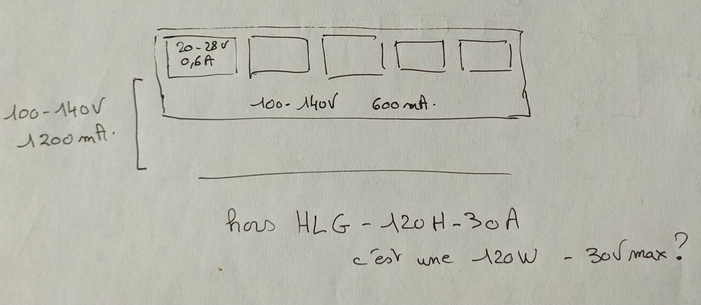 20-28V
0,6A
100-140V 600mA.
100-140V
1200mA.
hors HLG-120H-30A
c'est une 120W - 30V max?